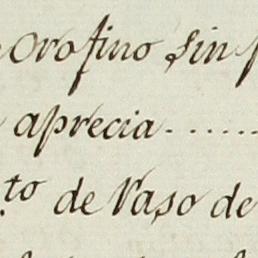 oro fino sin
aprecia......
.to de Vaso de